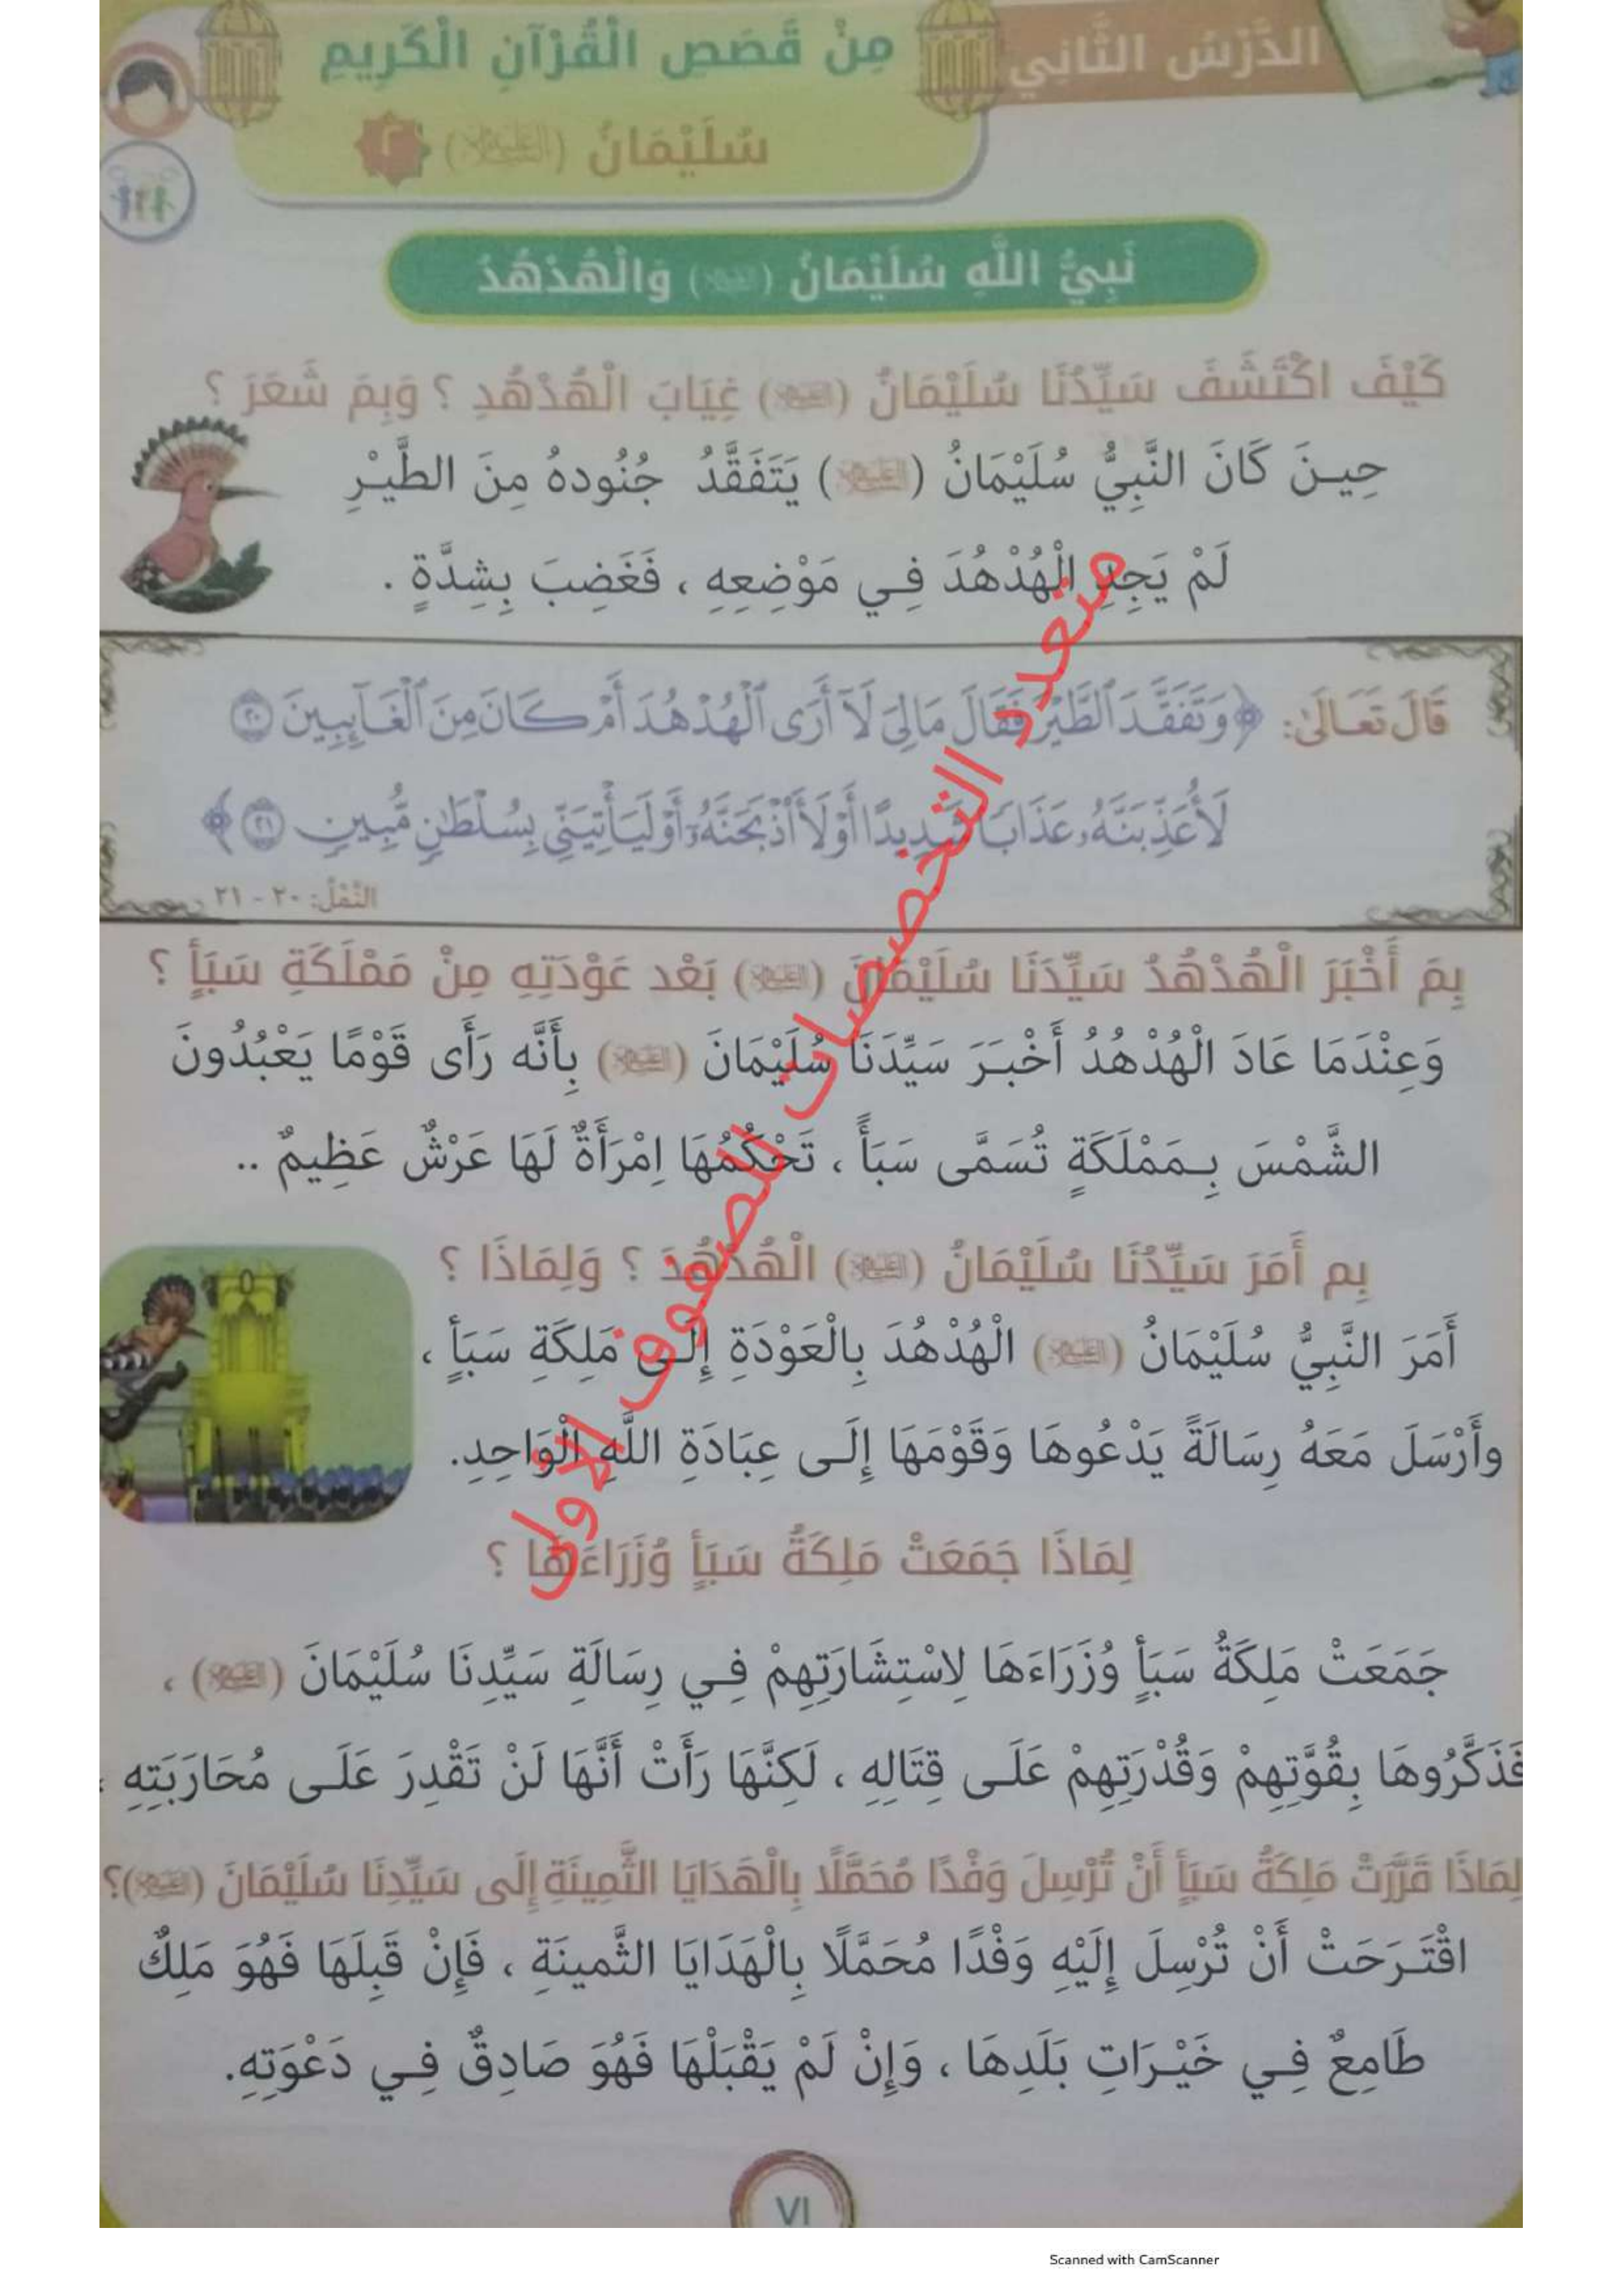 الدَّرْسُ الثَّانِي
مِنْ قَصَصِ الْقُرْآنِ الْكَرِيمِ
سُلَيْمَانُ (عليه السلام) ٢
نَبِيُّ اللَّهِ سُلَيْمَانُ (عليه السلام) وَالْهُدْهُدُ
كَيْفَ اكْتَشَفَ سَيِّدُنَا سُلَيْمَانُ (عليه السلام) غِيَابَ الْهُدْهُدِ ؟ وَبِمَ شَعَرَ ؟
حِينَ كَانَ النَّبِيُّ سُلَيْمَانُ (عليه السلام) يَتَفَقَّدُ جُنُودهُ مِنَ الطَّيْرِ
لَمْ يَجِدِ الْهُدْهُدَ فِي مَوْضِعِهِ ، فَغَضِبَ بِشِدَّةٍ .
قَالَ تَعَالَىٰ: ﴿وَتَفَقَّدَ ٱلطَّيْرَ فَقَالَ مَالِىَ لَآ أَرَى ٱلْهُدْهُدَ أَمْ كَانَ مِنَ ٱلْغَآئِبِينَ ٢٠
لَأُعَذِّبَنَّهُۥ عَذَابًا شَدِيدًا أَوْ لَأَاْذْبَحَنَّهُۥٓ أَوْ لَيَأْتِيَنِّى بِسُلْطَٰنٍ مُّبِينٍ ٢١﴾
النَّمْلُ: ٢٠ - ٢١
بِمَ أَخْبَرَ الْهُدْهُدُ سَيِّدَنَا سُلَيْمَانَ (عليه السلام) بَعْد عَوْدَتِهِ مِنْ مَمْلَكَةِ سَبَأٍ ؟
وَعِنْدَمَا عَادَ الْهُدْهُدُ أَخْبَرَ سَيِّدَنَا سُلَيْمَانَ (عليه السلام) بِأَنَّه رَأَى قَوْمًا يَعْبُدُونَ
الشَّمْسَ بِمَمْلَكَةٍ تُسَمَّى سَبَأً ، تَحْكُمُهَا اِمْرَأَةٌ لَهَا عَرْشٌ عَظِيمٌ ..
بِم أَمَرَ سَيِّدُنَا سُلَيْمَانُ (عليه السلام) الْهُدْهُدَ ؟ وَلِمَاذَا ؟
أَمَرَ النَّبِيُّ سُلَيْمَانُ (عليه السلام) الْهُدْهُدَ بِالْعَوْدَةِ إِلَى مَلِكَةِ سَبَأٍ ،
وأَرْسَلَ مَعَهُ رِسَالَةً يَدْعُوهَا وَقَوْمَهَا إِلَى عِبَادَةِ اللَّهِ الْوَاحِدِ.
لِمَاذَا جَمَعَتْ مَلِكَةُ سَبَأٍ وُزَرَاءَهَا ؟
جَمَعَتْ مَلِكَةُ سَبَأٍ وُزَرَاءَهَا لِاسْتِشَارَتِهِمْ فِي رِسَالَةِ سَيِّدِنَا سُلَيْمَانَ (عليه السلام) ،
فَذَكَّرُوهَا بِقُوَّتِهِمْ وَقُدْرَتِهِمْ عَلَى قِتَالِهِ ، لَكِنَّهَا رَأَتْ أَنَّهَا لَنْ تَقْدِرَ عَلَى مُحَارَبَتِهِ ،
لِمَاذَا قَرَّرَتْ مَلِكَةُ سَبَأٍ أَنْ تُرْسِلَ وَفْدًا مُحَمَّلًا بِالْهَدَايَا الثَّمِينَةِ إِلَى سَيِّدِنَا سُلَيْمَانَ (عليه السلام)؟
اقْتَرَحَتْ أَنْ تُرْسِلَ إِلَيْهِ وَفْدًا مُحَمَّلًا بِالْهَدَايَا الثَّمينَةِ ، فَإِنْ قَبِلَهَا فَهُوَ مَلِكٌ
طَامِعٌ فِي خَيْرَاتِ بَلَدِهَا ، وَإِنْ لَمْ يَقْبَلْهَا فَهُوَ صَادِقٌ فِي دَعْوَتِهِ.
٧١
متعدد التخصصات للصفوف الأولى
Scanned with CamScanner